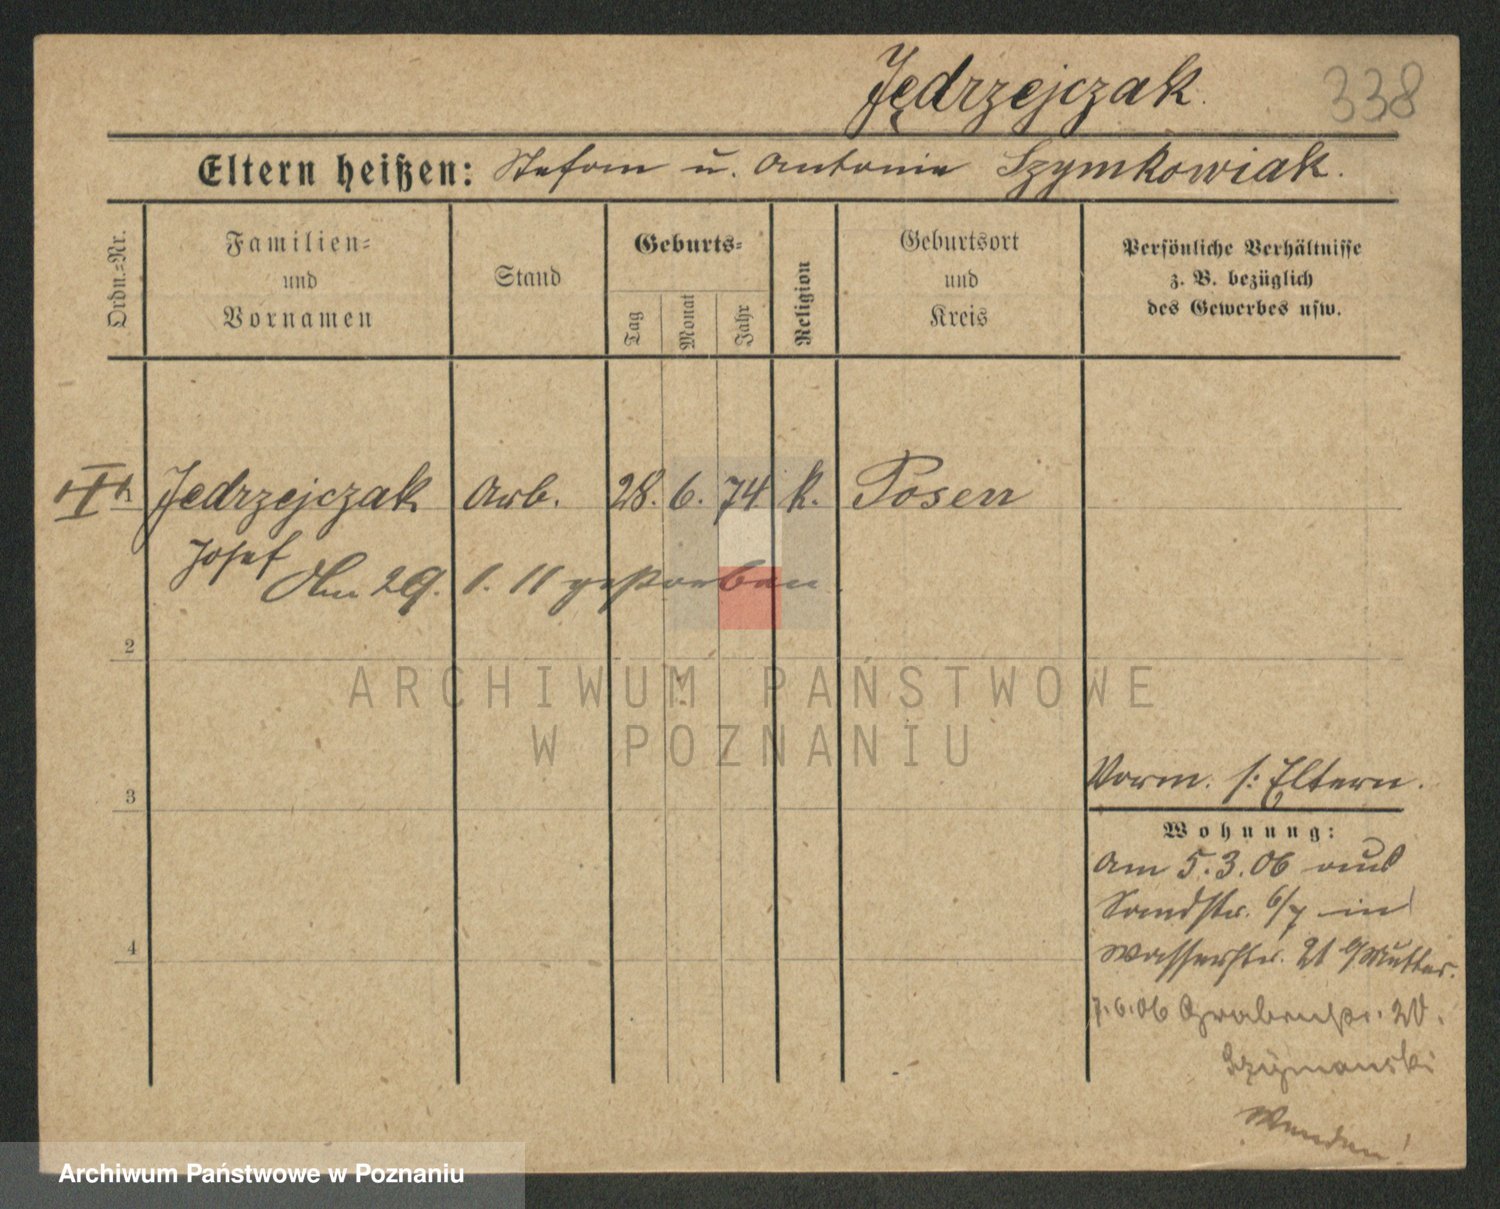 Jędrzejczak.
338
Eltern heißen: Stefan u. Antonie Szymkowiak.
Ordn.=Nr.
Familien=
und
Vornamen
Stand
Geburts=
Tag
Monat
Jahr
Religion
Geburtsort
und
Kreis
Persönliche Verhältnisse
z. B. bezüglich
des Gewerbes usw.
Jedrzejczak Arb. 28. 6. 74 k. Posen
Josef
Am 29. 1. 11 gestorben.
2
ARCHIWUM PAŃSTWOWE
W POZNANIU
3
Vorm. s: Eltern.
Wohnung:
Am 5.3.06 aus
Sandstr. 6/7 in
4
Wasserstr. 21 Mutter.
7.6.06 Grabenstr. 20.
Szymanski
Wenden!
Archiwum Państwowe w Poznaniu